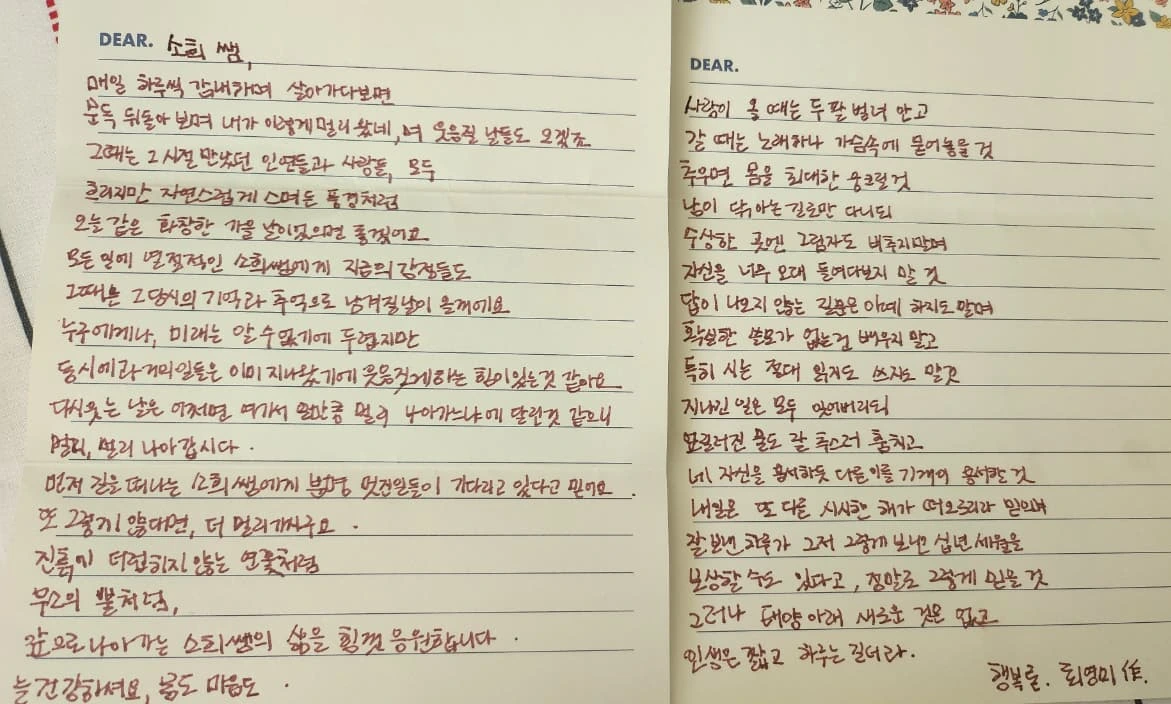 DEAR. 소희 쌤,
매일 하루씩 감내하며 살아가다보면
문득 뒤돌아 보며 내가 이렇게 멀리 왔네, 며 웃음질 날들도 오겠죠
그때는 그 시절 만났던 인연들과 사람들, 모두
흐리지만 자연스럽게 스며든 풍경처럼
오늘 같은 화창한 가을 날이었으면 좋겠어요
모든 일에 열정적인 소희쌤에게 지금의 감정들도
그때는 그 당시의 기억과 추억으로 남겨질 날이 올꺼에요
누구에게나, 미래는 알 수 없기에 두렵지만
동시에 과거의 일들은 이미 지나왔기에 웃음짓게 하는 힘이 있는것 같아요
다시 웃는 날은 어쩌면 여기서 얼만큼 멀리 나아가느냐에 달린것 같으니
멀리, 멀리 나아갑시다.
먼저 길을 떠나는 소희쌤에게 분명 멋진일들이 기다리고 있다고 믿어요.
또 그렇지 않다면, 더 멀리가시구요.
진흙에 더럽히지 않는 연꽃처럼
무소의 뿔처럼,
앞으로 나아가는 소희쌤의 삶을 힘껏 응원합니다.
늘 건강하셔요, 몸도 마음도.
DEAR.
사랑이 올 때는 두 팔 벌려 안고
갈 때는 노래하나 가슴속에 묻어놓을 것
추우면 몸을 최대한 웅크릴 것
남이 닦아논 길로만 다니되
수상한 곳엔 그림자도 비추지말며
자신을 너무 오래 들여다보지 말 것
답이 나오지 않는 질문은 아예 하지도 말며
확실한 쓸모가 없는건 배우지 말고
특히 시는 절대 읽지도 쓰지도 말것
지나간 일은 모두 잊어버리되
엎질러진 물도 잘 추스려 훔치고
네 자신을 용서하듯 다른이를 기꺼이 용서할 것
내일은 또 다른 시시한 해가 떠오르리라 믿으며
잘 보낸 하루가 그저 그렇게 보낸 십년 세월을
보상할 수도 있다고, 정말로 그렇게 믿을 것
그러나 태양 아래 새로운 것은 없고
인생은 짧고 하루는 길더라.
행복론. 최영미 作.